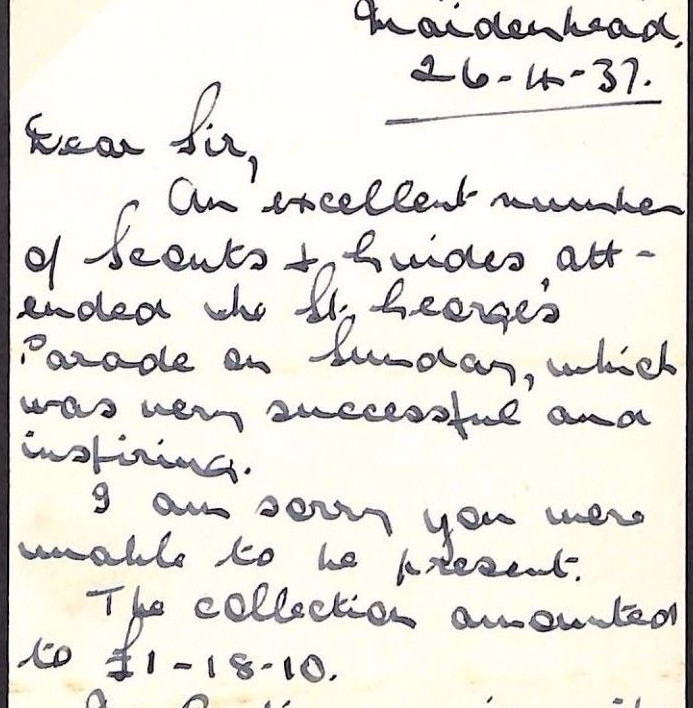 Maidenhead.
26-4-37.
Dear Sir,
An excellent number
of Scouts + Guides att-
ended the St. George's
Parade on Sunday, which
was very successful and
inspiring.
I am sorry you were
unable to be present.
The collection amounted
to £1-18-10.